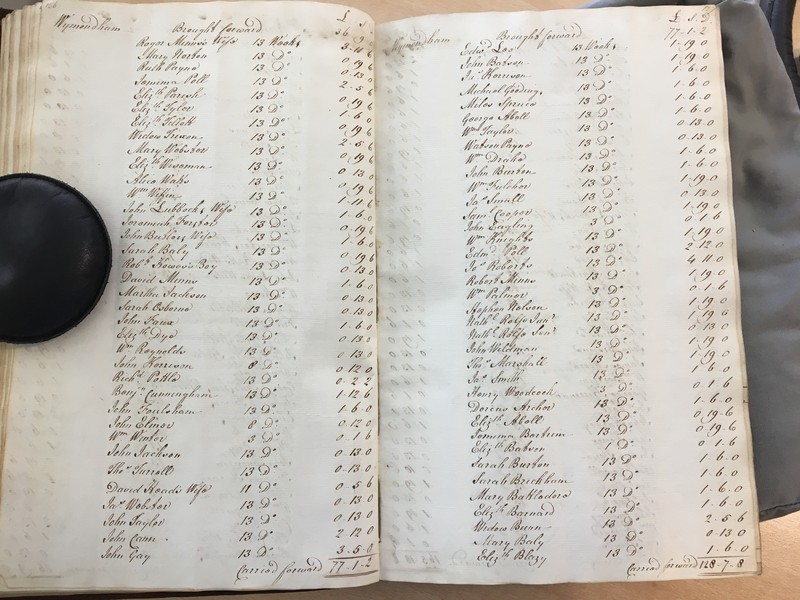 Wymondham Brought forward
Roger Minns's Wife 13 Weeks
Mary Norton 13 Do
Ruth Payne 13 Do 0-19-6
Jemima Poll 13 Do 0-13-0
Elizth Parish 13 Do 2-5-6
Elizth Tyler 13 Do 0-19-6
Elizth Fillett 13 Do 1-6-0
Widow Treson 13 Do 0-19-6
Mary Webster 13 Do 2-5-6
Elizth Wiseman 13 Do 0-19-6
Alice Watts 13 Do 0-13-0
Wm 13 Do 0-19-6
John Lubbock's Wife 13 Do 1-11-6
Jeremiah Forster 13 Do 1-6-0
John Butters Wife 13 Do 0-19-6
Sarah Baly 13 Do 1-6-0
Robt Howes's Boy 13 Do 0-19-6
David Minns 13 Do 0-13-0
Martha Jackson 13 Do 1-6-0
Sarah Osborne 13 Do 0-13-0
John Faux 13 Do 0-13-0
Elizth Dye 13 Do 1-6-0
Wm Reynolds 13 Do 0-13-0
John Harrison 8 Do 0-13-0
Richd Pottle 13 Do 0-12-0
Benjn Cunningham 13 Do 0-2-2
John Foulsham 13 Do 1-12-6
John Elmer 8 Do 1-6-0
Wm Winter 3 Do 0-12-0
John Jackson 13 Do 0-1-6
Thos Turrell 13 Do 0-13-0
David Hoads Wife 11 Do 0-13-0
Jas Webster 13 Do 0-5-6
John Taylor 13 Do 0-13-0
John Cann 13 Do 0-13-0
John Gay 13 Do 2-12-0
3-5-0
Carried forward 77-1-2
£ s d
Wymondham Brought forward 77-1-2
Edwd Las 13 Weeks 1-19-0
John Batson 13 Do 1-19-0
Jas Harrison 13 Do 1-6-0
Michael Goodings 13 Do 1-19-0
Miles Spence 13 Do 1-6-0
George Aboll 13 Do 1-6-0
Wm Taylor 13 Do 0-13-0
Watson Payne 13 Do 0-13-0
Wm Drake 13 Do 1-6-0
John Burton 13 Do 1-6-0
Wm Fulcher 13 Do 1-19-0
Jas Small 13 Do 0-13-0
Saml Cooper 13 Do 1-19-0
John Cayling 3 Do 0-1-6
Wm Knights 13 Do 1-19-0
Edmd Poll 13 Do 2-12-0
Jas Roberts 13 Do 4-11-0
Robert Minns 13 Do 1-19-0
Wm Palmer 3 Do 0-1-6
Stephen Nelson 13 Do 1-19-0
Nathl Rolfe Junr 13 Do 1-19-6
Nathl Rolfe Senr 13 Do 0-13-0
John Wildman 13 Do 1-19-0
Thos Marshall 13 Do 1-19-0
Jas Smith 13 Do 1-6-0
Henry Woodcock 3 Do 0-1-6
Dorcas Archer 13 Do 1-6-0
Elizth Aboll 13 Do 0-19-6
Jemima Bartrum 13 Do 0-19-6
Elizth Batson 1 Do 0-1-6
Sarah Burton 13 Do 1-6-0
Sarah Brickham 13 Do 1-6-0
Mary Bakladore 13 Do 1-6-0
Elizth Barnard 13 Do
Widow Bunn 13 Do 2-5-6
Mary Baly 13 Do 0-13-0
Elizth Blazy 13 Do 1-6-0
Carried forward 128-7-8